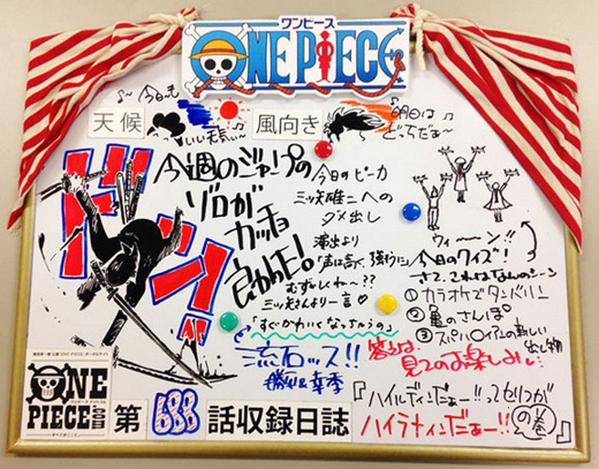 ワンピース
ONE PIECE
♪〜今日も
天候
いい天気ぃ〜♪
風向き
明日は
どっちだぁ〜
ドン!!
今週のジャンプの
ゾロが
カッチョ
良かった!
今日のピーカ
三ツ矢雄二への
ダメ出し
演出より
「声は高く、強そうに」
むずかしいわ〜??
三ツ矢さんより一言♡
「すぐかわいくなっちゃうの」
流石ッス!!
ウィ〜〜ン!!
今日のクイズ!
さて、これはなんのシーン
①カラオケでタンバリン
②亀のさんぽ
③スパハ○イアンの新しい
出し物
答えは、
見てのお楽しみ…
ONE
PIECE.com
ワンピース ドットコム
第688話収録日誌
『ハイルディンだぁー!!ってもリつが
ハイラナインだぁー!!』の巻